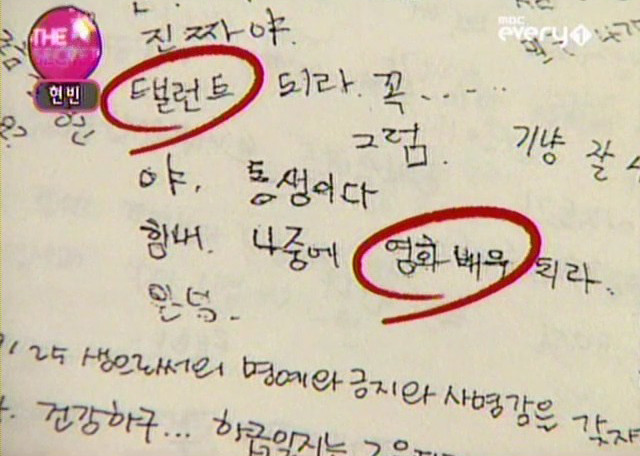 THE
SECRET
현빈
mbc
every1
진짜야.
탤런트 되라. 꼭.....
그럼. 기냥 잘
야. 동생이다
힘내. 나중에 영화배우 되라.
25 생으라서의 명예와 긍지와 사명감은 갖자
건강하구... 학급일지는